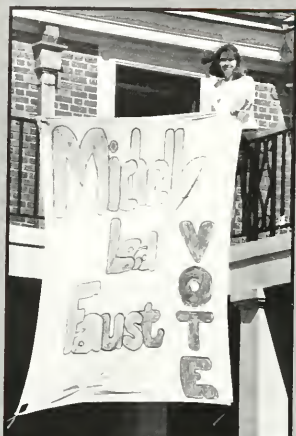 Michelle
Lea
Faust
VOTE